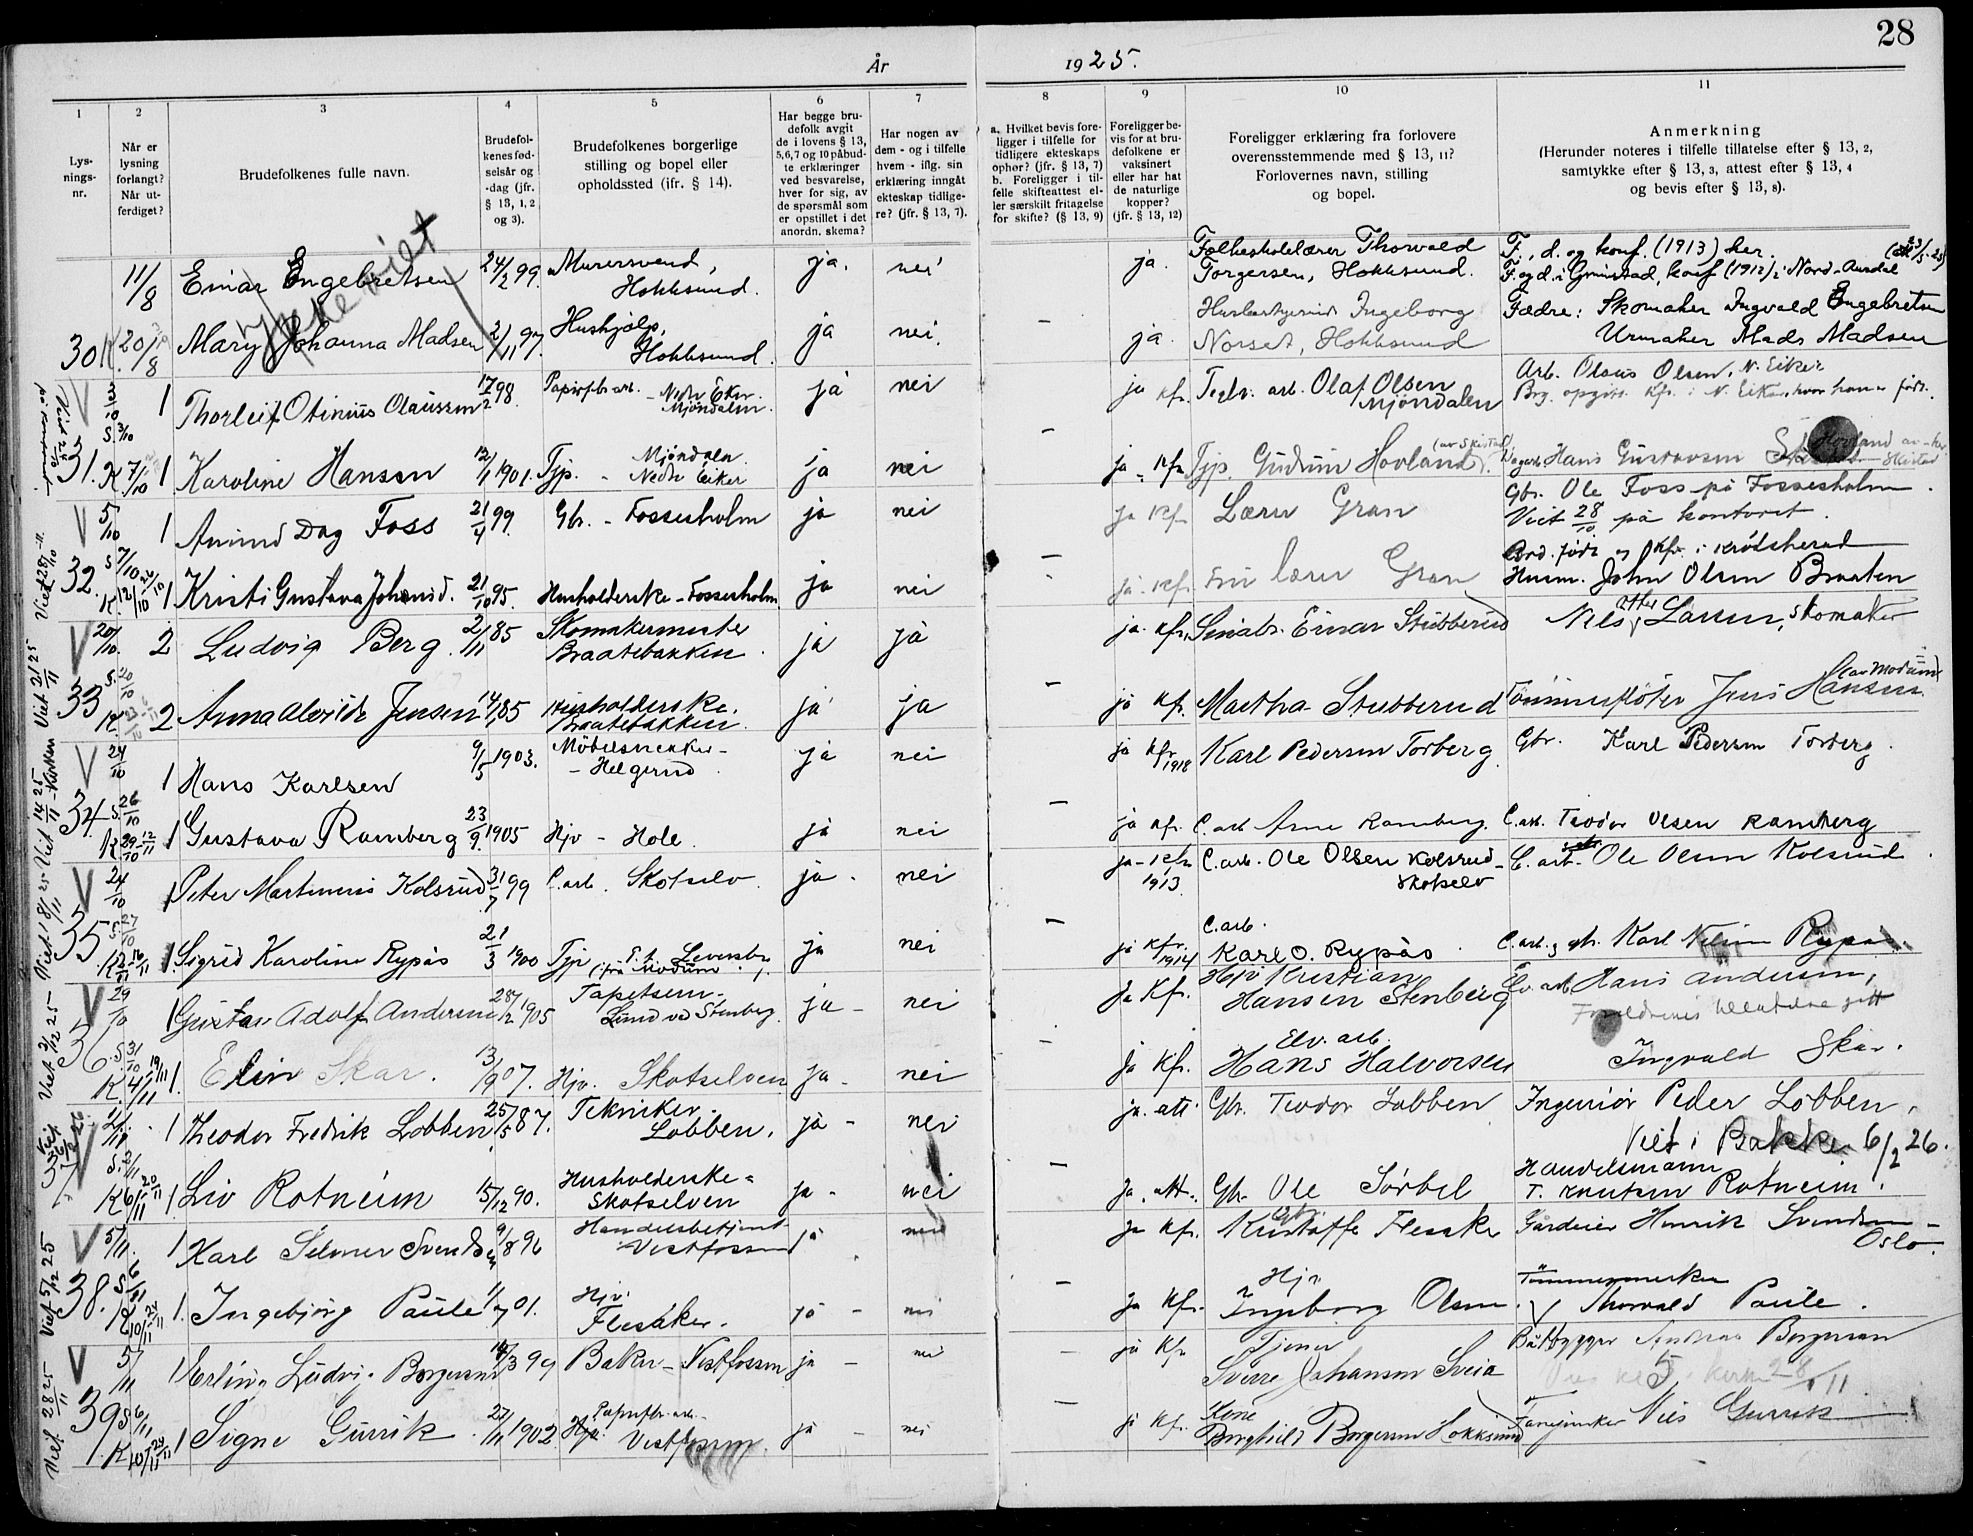 28
År
1925.
1
2
3
4
5
6
7
8
9
10
11
Lys-
nings-
nr.
Når er
lysning
forlangt?
Når ut-
ferdiget?
Brudefolkenes fulle navn.
Brudefol-
kenes fød-
selsår og
-dag (jfr.
§ 13, 1, 2
og 3).
Brudefolkenes borgerlige
stilling og bopel eller
opholdssted (ifr. § 14).
Har begge bru-
defolk avgit
de i lovens § 13,
5, 6, 7 og 10 påbud-
te erklæringer
ved besvarelse,
hver for sig, av
de spørsmål som
er opstillet i det
anordn. skema?
Har nogen av
dem - og i tilfelle
hvem - iflg. sin
erklæring inngått
ekteskap tidlige-
re? (jfr. § 13, 7).
a. Hvilket bevis fore-
ligger i tilfelle for
tidligere ekteskaps
ophør? (ifr. § 13, 7)
b. Foreligger i til-
felle skifteattest el-
ler særskilt fritagelse
for skifte? (§ 13, 9)
Foreligger be-
vis for at bru-
defolkene er
vaksinert
eller har hat
de naturlige
kopper?
(jfr. § 13, 12)
Foreligger erklæring fra forlovere
overensstemmende med § 13, 11?
Forlovernes navn, stilling
og bopel.
Anmerkning
(Herunder noteres i tilfelle tillatelse efter § 13, 2,
samtykke efter § 13, 3, attest efter § 13, 4
og bevis efter § 13, 8).
ikke viet
11/8 Einar Engebretsen 24/2 99. Murersvend, Hokksund. ja. nei ja. Folkeskolelærer Thorvald Torgersen, Hokksund. F., d. og konf. (1913) her.
F. og d. i Grimstad, konf (1912) i Nord-Aurdal
30 K. 20/8 Mary Johanna Madsen 2/11 97. Hushjelp, Hokksund. ja nei. - ja. Ingeborg Norset, Hokksund Fædre: Skomaker Ingvald Engebretsen
Urmaker Mads Madsen
V 3/10 1 Thorleif Otinius Olaussen 17/2 98. Papirfbr arb. - Nedre Eker. Mjøndalen. ja nei ja kfr. Teglv. arb. Olaf Olsen Mjøndalen Arb. Olaus Olsen, N. Eiker
Brg. opgir. kfr. i N. Eiker, hvor han er født.
31. K 7/10 1 Karoline Hansen 12/1 1901. Tjp. - Mjøndalen Nedre Eiker ja nei - ja kfr. Tjp. Gudrun Hovland (av Skistad). Hans Gustavsen Hovland
V 5/10 1 Anund Dag Foss 21/4 99. Gbr. - Fossesholm ja nei ja kfr Lærer Gran Gbr. Ole Foss på Fossesholm.
Viet 28/10 på kontoret.
32. S 7/10 K. 12/10 1 Kristi Gustava Johnsd. 21/10 95. Husholderske - Fossesholm ja nei - ja. kfr. Fru lærer Gran Brd. født og kfr. i Krødsherad
Husm. John Olsen Braaten
V 20/10. 2 Ludvig Berg. 2/11 85 Skomakermester Braatebakken. ja ja ja. kfr. Einar Stubberud Nils Larsen, skomaker
33 S. 20/10 K. 2 Anna Alvilde Jensen 14/1 85 Husholderske. Braatebakken. ja ja - ja kfr. Martha Stubberud Tømmerfløter Jens Hansen (av Modum)
V 24/10 1 Hans Karlsen 9/5 1903. Møbelsnekker - Helgerud. ja nei ja kfr 1918 Karl Pedersen Torberg Gbr. Karl Pedersen Torberg.
34. S. 26/10 K 29/10 - 12/11 1 Gustava Ramberg 23/9 1905 Hjv - Hole. ja nei - ja kfr. C. arb Arne Ramberg. C. arb. Teodor Olsen Ramberg
V 24/10 1 Peter Martinius Kolsrud 31/7 99 C. arb. Skotselv. ja - nei ja - kfr 1913. C. arb. Ole Olsen Kolsrud - Skotselv C. arb. Ole Olsen Kolsrud.
35 S. 27/10 1. Sigrid Karoline Rypås 21/3 1900 Tjp. (frå Modum) ja nei - ja kfr. 1914 C. arb. Karl O. Rypås. C. arb. Karl Rypås.
V 29/10 1 Gustav Adolf Andersen 28/12 1905 Tapetsem. Lund ved Stenberg. ja - nei ja Kfr. Kristian Hansen Stenberg Hans Andersen,
36. S. 31/10 K. 4/11 - 19/11 1. Elin Skar. 13/9 07. Hjv. Skotselven ja - nei ja kfr. Elv. arb. Hans Halvorsen Ingvald Skar.
1/11 - 1 Theodor Fredrik Lobben 25/5 87. Tekniker. Lobben. ja - nei ja. att. Gbr. Teodor Lobben Ingeniør Peder Lobben.
Viet i Bakke 6/2 26.
37 S. 2/11 K 6/11 20/11 1 Liv Rotneim 15/12 90. Husholderske - Skotselven ja - nei - ja, att. Gbr. Ole Sørbel Handelsmann T. Knutsen Rotneim.
V 5/11. 1 Karl Selmer Svendsen 9/8 96 Handelsbetjent Vestfossen ja nei ja kfr. Kristoffer Flesaker Gårdeier Henrik Svendsen - Oslo.
38. S. 6/11 10/11 1. Ingebjørg Paule 1/7 01. Hjv. Flesaker. ja - nei - ja kfr. Hjv Ingeborg Olsen. Tømmermerker Thorvald Paule.
V 5/11 1 Erling Ludvig Borgersen 14/3 99 Baker - Vestfossen ja - nei - ja kfr Tjener Sverre Johansen Sveia Båtbygger Andreas Borgersen
39 S 6/11 K 10/11 1 Signe Gurrik. 27/11 1902 Papirfbr. arb. Vestfossen. ja - nei - ja kfr. Kone Borghild Borgersen Hokksund Nils Gurrik
Viet 28/11 25
Viet 5/12 25
Viet 2/12 25
Viet 18/11 25
Viet 14/11 25 - Kirken
Viet 21/11 25
Viet 28/10